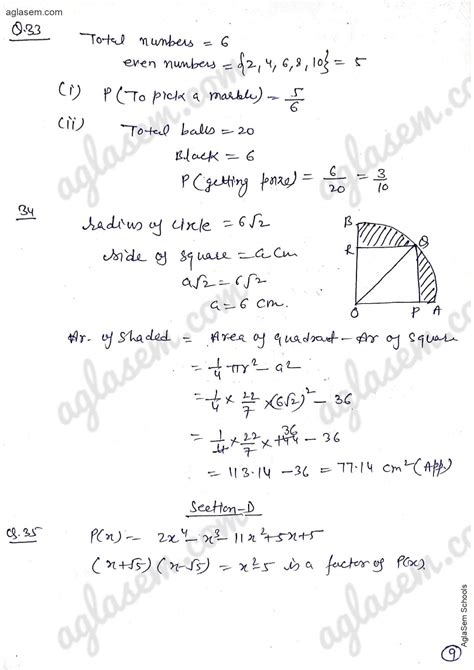 aglasem.com
Q.33 Total numbers = 6
even numbers = {2, 4, 6, 8, 10} = 5
(i) P(To pick a marble) = 5/6
(ii) Total balls = 20
Black = 6
P(getting prize) = 6/20 = 3/10
34 Radius of circle = 6√2
side of square = a cm
a√2 = 6√2
a = 6 cm.
B
R
Q
O
P
A
Ar. of Shaded = Area of quadrant - Ar of Square
= 1/4 πr² - a²
= 1/4 × 22/7 × (6√2)² - 36
36
= 1/4 × 22/7 × 144 - 36
= 113.14 - 36 = 77.14 cm² (App.)
Section-D
Q.35 P(x) = 2x⁴ - x³ - 11x² + 5x + 5
(x+√5) (x-√5) = x²-5 is a factor of P(x).
9
AglaSem Schools
aglasem.com